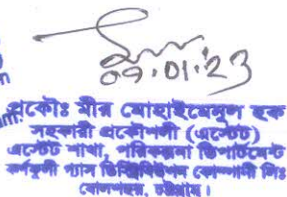 09.01.23
প্রকৌঃ মীর মোহাইমেনুল হক
সহকারী প্রকৌশলী (এস্টেট)
এস্টেট শাখা, পরিকল্পনা ডিপার্টমেন্ট
কর্ণফুলী গ্যাস ডিস্ট্রিবিউশন কোম্পানী লিঃ
ষোলশহর, চট্টগ্রাম।